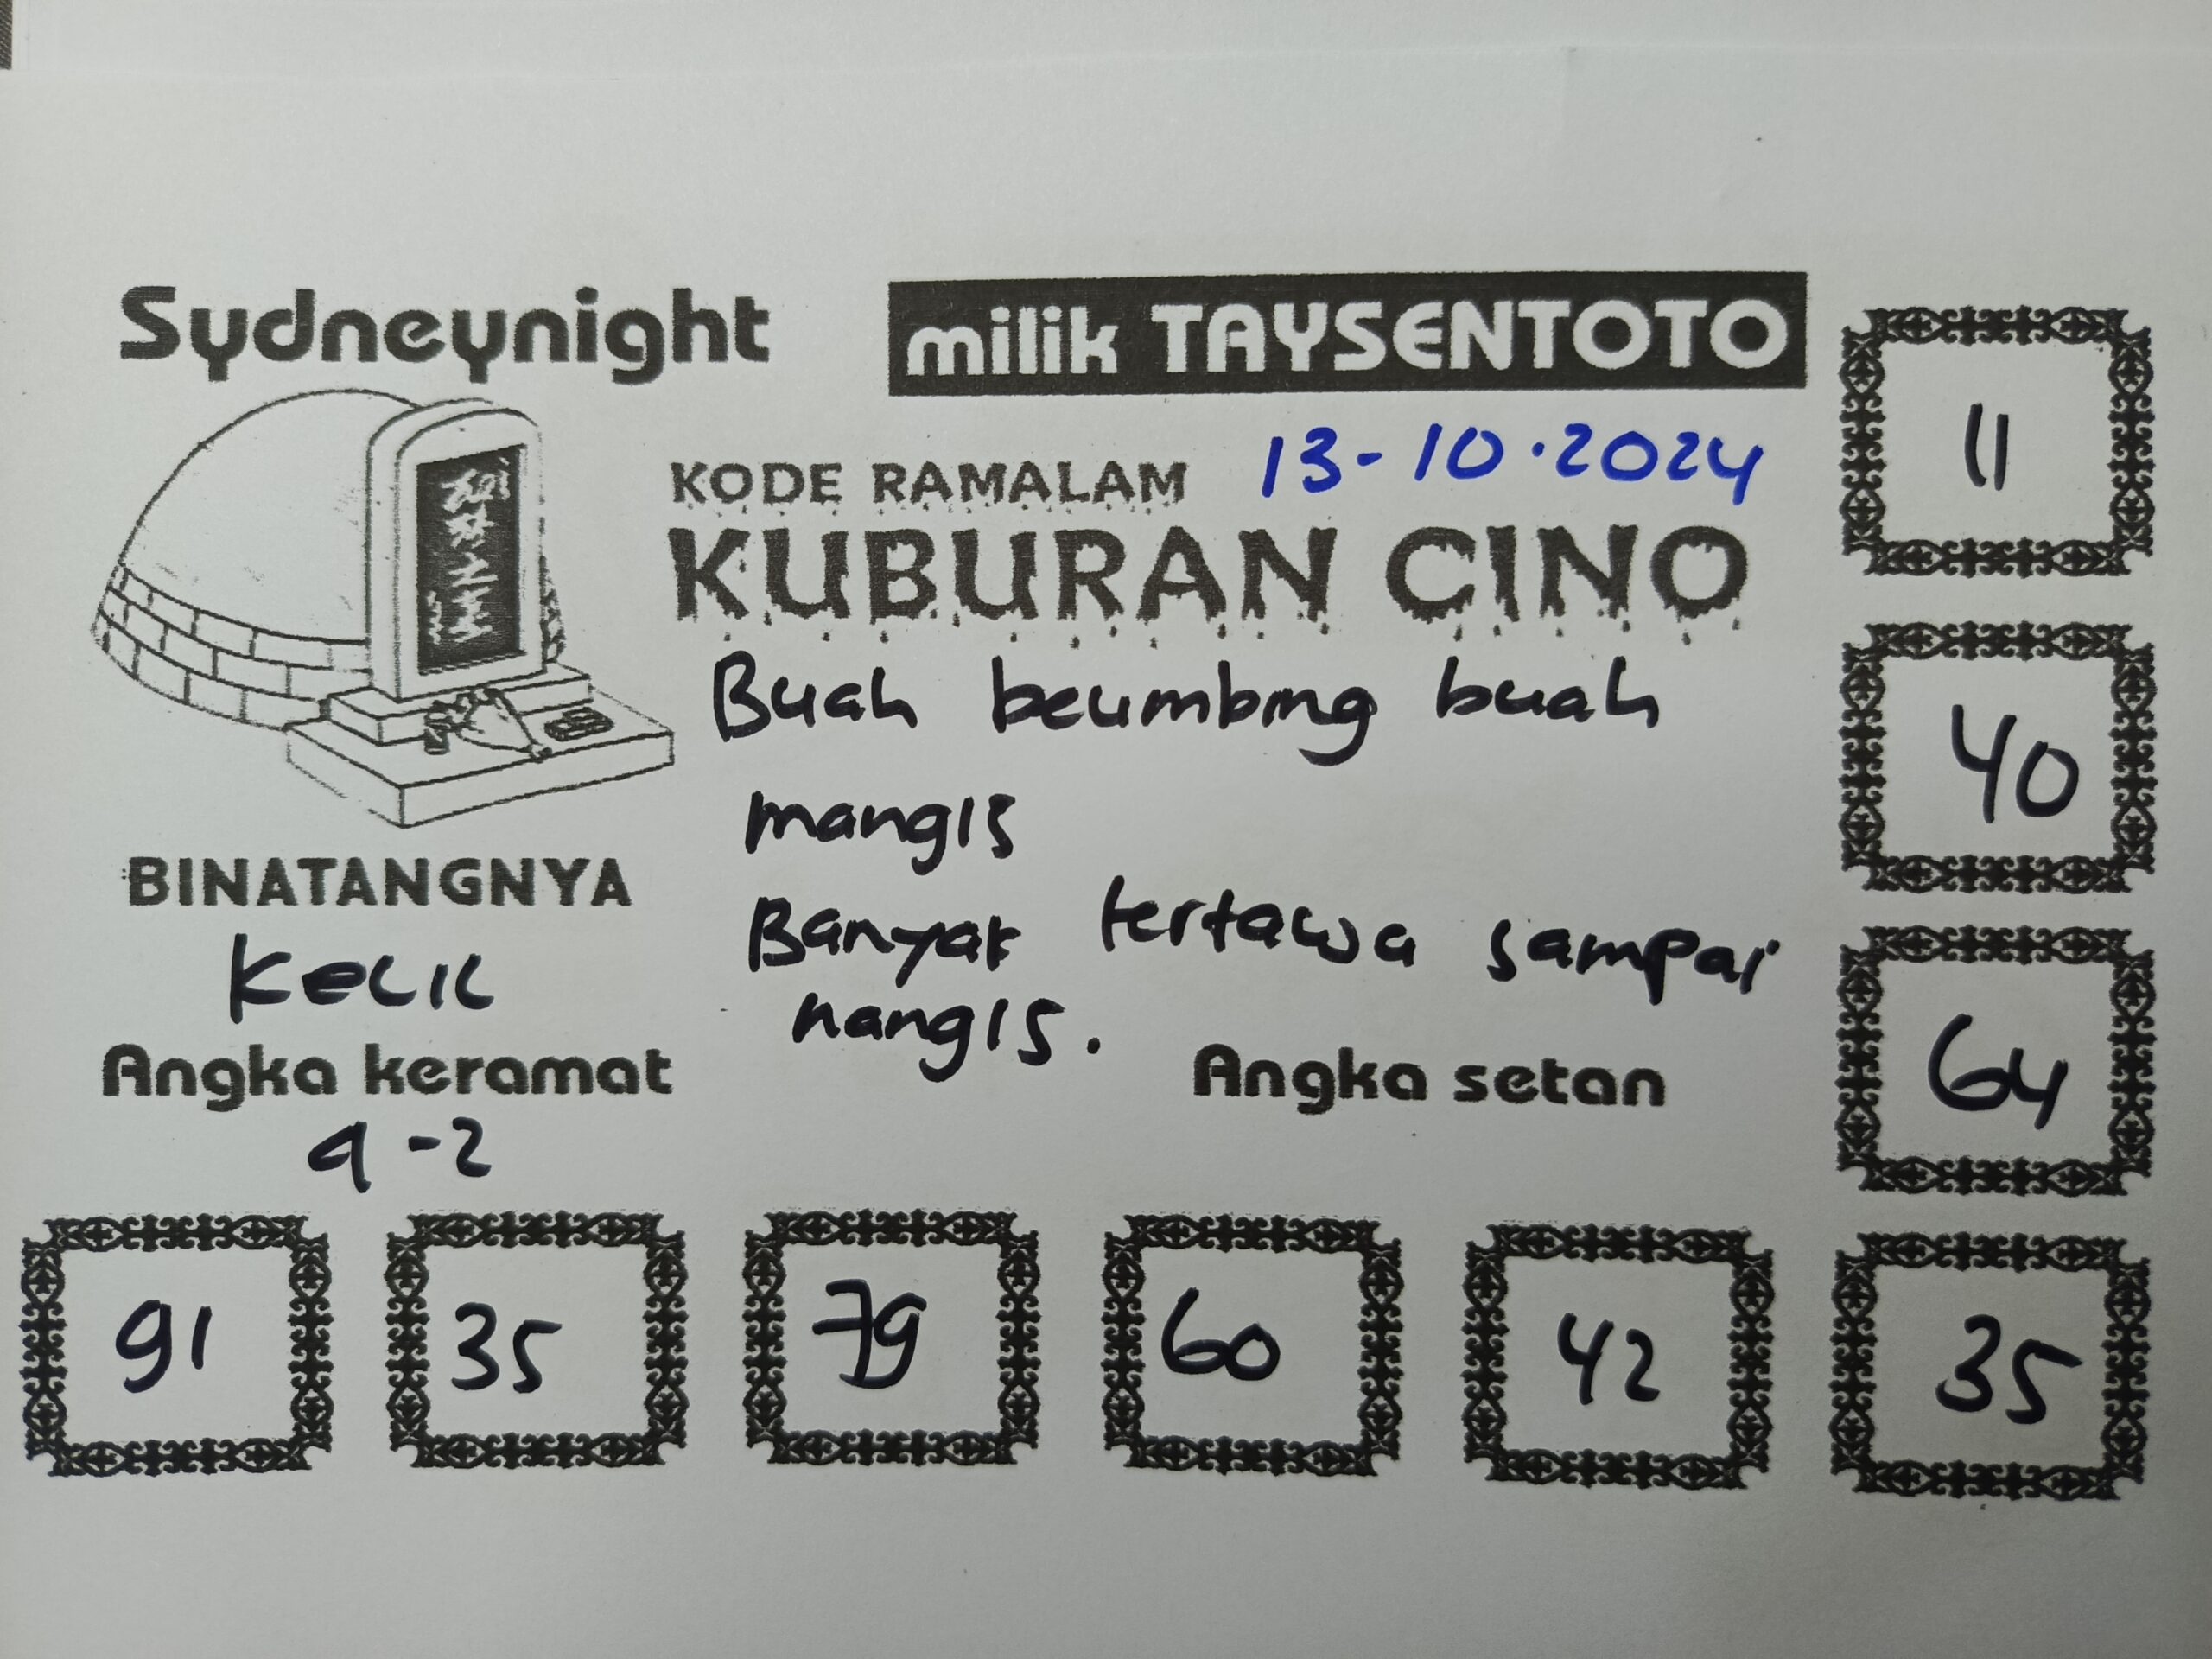 Sydneynight
milik TAYSENTOTO
13-10.2024
KODE RAMALAM
KUBURAN CINO
Buah beumbing buah
mangis
Banyak tertawa sampai
nangis.
BINATANGNYA
Kecil
Angka keramat
9-2
Angka setan
11
40
64
91 35 79 60 42 35